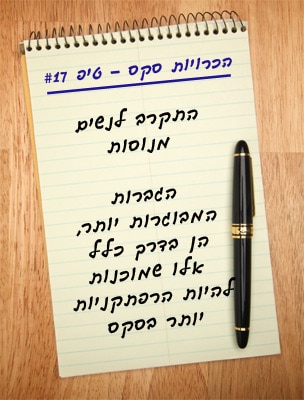 הכרויות סקס – טיפ 17#
התקרב לנשים
מנוסות
הגברות
המבוגרות יותר,
הן בדרך כלל
אלו שמוכנות
להיות הרפתקניות
יותר בסקס